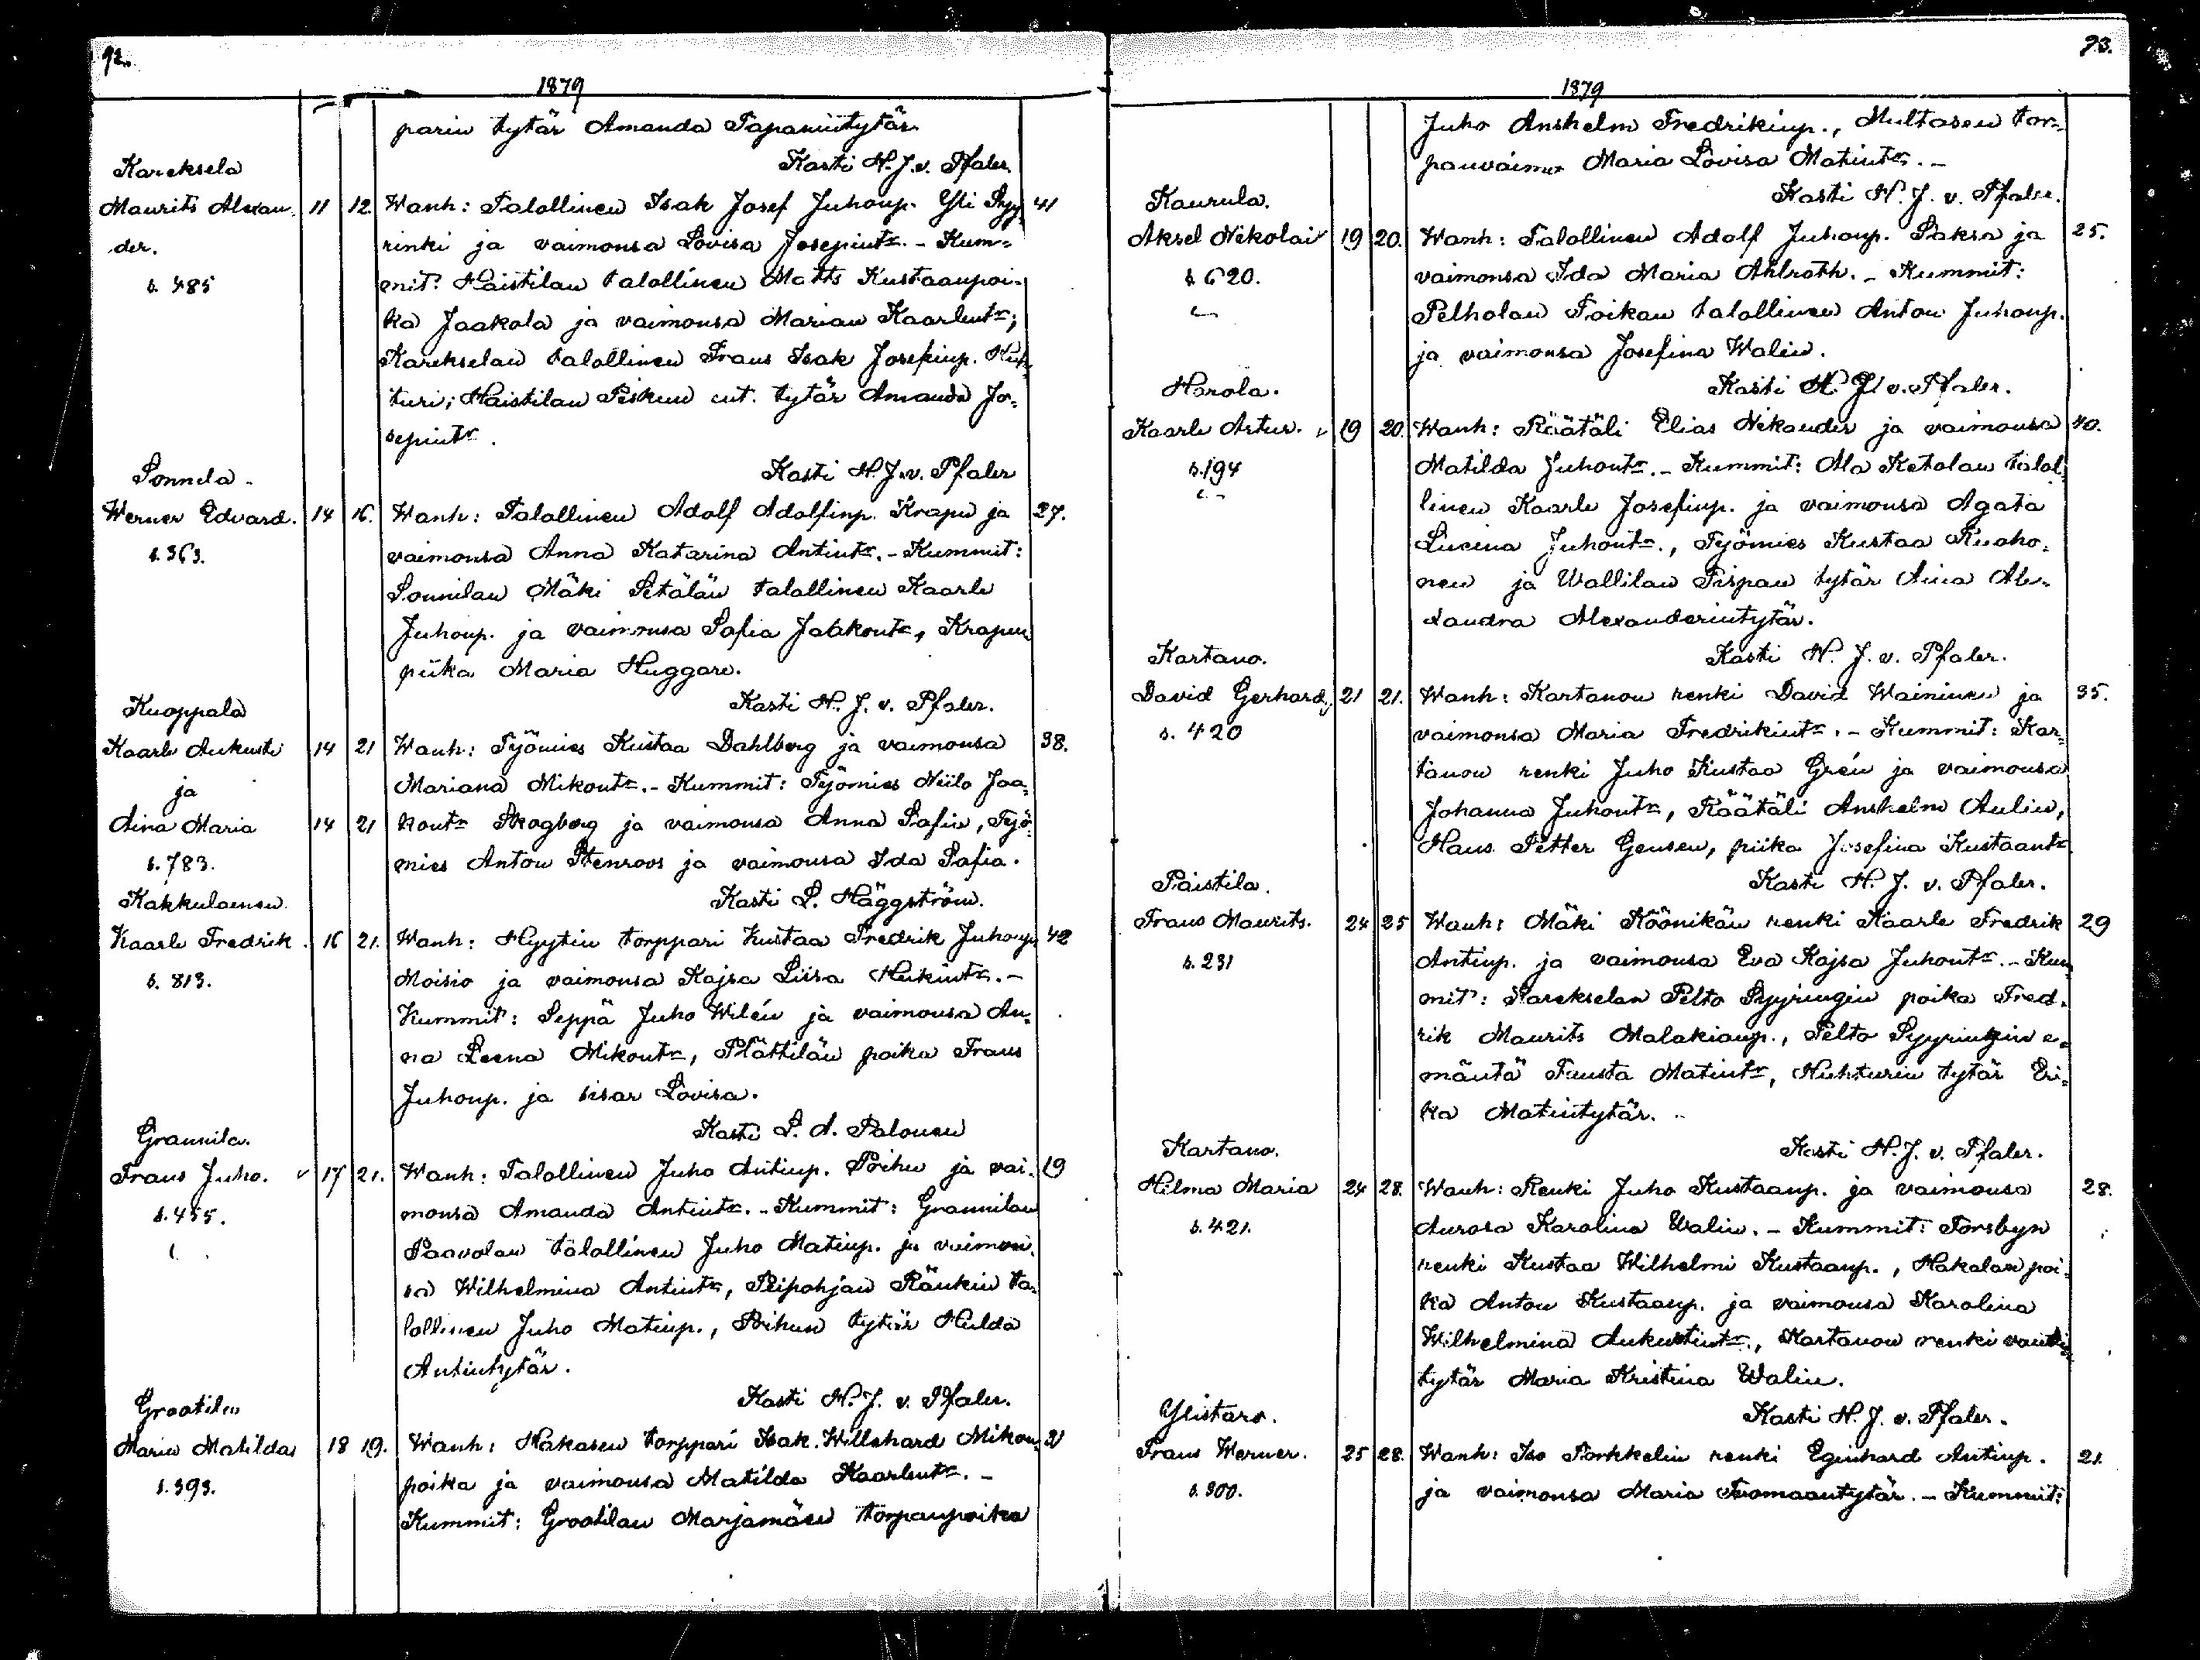 92.
1879
parin tytär Amanda Tapanintytär.
Kasti H. J. v. Pfaler.
Kareksela
Maurits Alexan- 11 12. Wanh: Talollinen Isak Josef Juhonp. Yli Syy- 41
der. rinki ja vaimonsa Lovisa Josepintr. - Kum-
s. 485 mit: Haistilan talollinen Matts Kustaanpoi-
ka Jaakola ja vaimonsa Marian Kaarlentr;
Karekselan talollinen Frans Isak Josefinp.
turi; Haistilan Piskun tytär Amanda Jo-
sepintr.
Sonnila. Kasti H. J. v. Pfaler
Werner Edvard. 14 16. Wanh: Talollinen Adolf Adolfinp. Krapu ja 27.
s. 363. vaimonsa Anna Katarina Antintr. - Kummit:
Sonnilan Mäki Setälän talollinen Kaarle
Juhonp. ja vaimonsa Safia Jaakontr, Krapun
piika Maria Huggare.
Kuoppala Kasti H. J. v. Pfaler.
Kaarle Aukusti 14 21 Wanh: Työmies Kustaa Dahlberg ja vaimonsa 38.
ja Mariana Mikontr. - Kummit: Työmies Niilo Jaa-
Aina Maria 14 21 kontr Skogberg ja vaimonsa Anna Safia, Työ-
s. 783. mies Anton Stenroos ja vaimonsa Ida Safia.
Kakkulainen. Kasti L. Häggström.
Kaarle Fredrik. 16 21. Wanh: Hyytin torppari Kustaa Fredrik Juhonp. 42
s. 813. Moisio ja vaimonsa Kajsa Liisa Heikintr. -
Kummit: Seppä Juho Wilén ja vaimonsa An-
na Leena Mikontr, Plättilän poika Frans
Juhonp. ja sisar Lovisa.
Grannila. Kasti L. A. Palonen
Frans Juho. 17 21. Wanh: Talollinen Juho Antinp. Poihu ja vai- 19
s. 455. monsa Amanda Antintr. - Kummit: Grannilan
Paavolan talollinen Juho Matinp. ja vaimon-
sa Wilhelmina Antintr, Peipohjan Ränkin ta-
lollinen Juho Matinp., Poihun tytär Hulda
Antintytär.
Grootila Kasti H. J. v. Pfaler.
Maria Matilda 18 19. Wanh: Hakasen torppari Isak Willehard Mikon- 21
s. 393. poika ja vaimonsa Matilda Kaarlentr. -
Kummit: Grootilan Marjamäen torpanpoika
93.
1879
Juho Anshelm Fredrikinp., Multasen tor-
panvaimo Maria Lovisa Matintr. -
Kaurula. Kasti H. J. v. Pfaler.
Aksel Nikolai 19 20. Wanh: Talollinen Adolf Juhonp. Saksa ja 25.
s. 620. vaimonsa Ida Maria Ahlroth. - Kummit:
Pelholan Poikan talollinen Anton Juhonp.
ja vaimonsa Josefina Walin.
Harola. Kasti H. J. v. Pfaler.
Kaarle Artur. 19 20. Wanh: Räätäli Elias Nikander ja vaimonsa 40.
s. 194 Matilda Juhontr. - Kummit: Ala Ketolan talol-
linen Kaarle Josefinp. ja vaimonsa Agata
Lucina Juhontr., Työmies Kustaa Ruoho-
nen ja Wallilan Piispan tytär Aina Ale-
xandra Alexanderintytär.
Kartano. Kasti H. J. v. Pfaler.
David Gerhard. 21 21. Wanh: Kartanon renki David Waininen ja 35.
s. 420 vaimonsa Maria Fredrikintr. - Kummit: Kar-
tanon renki Juho Kustaa Grén ja vaimonsa
Johanna Juhontr, Räätäli Anshelm Aulin,
Hans Petter Gensen, piika Josefina Kustaantr
Paistila. Kasti H. J. v. Pfaler.
Frans Maurits. 24 25 Wanh: Mäki Köönikän renki Kaarle Fredrik 29
s. 231 Antinp. ja vaimonsa Eva Kajsa Juhontr. - Kum-
mit: Karekselan Pelto Syyringin poika Fred-
rik Maurits Malakianp., Pelto Syyringin e-
mäntä Justa Matintr, Huhturin tytär Eri-
ka Matintytär.
Kartano. Kasti H. J. v. Pfaler.
Hilma Maria 24 28. Wanh: Renki Juho Kustaanp. ja vaimonsa 28.
s. 421. Aurora Karolina Walin. - Kummit: Forsbyn
renki Kustaa Wilhelmi Kustaanp., Hakalan poi-
ka Anton Kustaanp. ja vaimonsa Karolina
Wilhelmina Aukustintr., Kartanon renki
tytär Maria Kristina Walin.
Ylistaro. Kasti H. J. v. Pfaler.
Frans Werner. 25 28. Wanh: Iso Porkkelin renki Eginhard Antinp. 21.
s. 300. ja vaimonsa Maria Tuomaantytär. - Kummit: